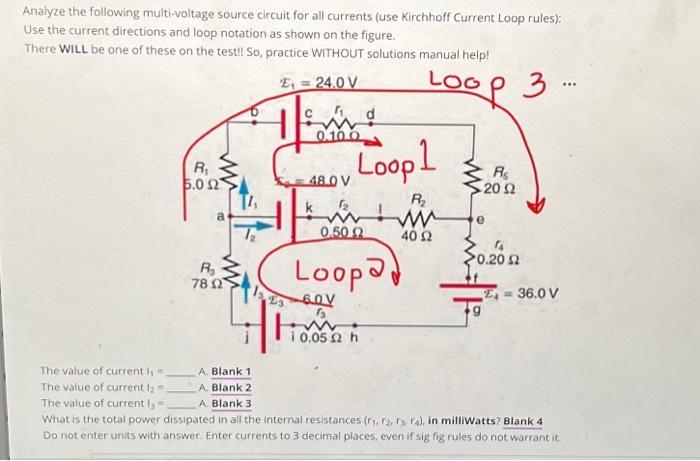 Analyze the following multi-voltage source circuit for all currents (use Kirchhoff Current Loop rules):
Use the current directions and loop notation as shown on the figure.
There WILL be one of these on the test!! So, practice WITHOUT solutions manual help!
Loop 3 ...
Ɛ₁ = 24.0 V
b
c
r₁
d
0.10 Ω
Loop 1
R₁
5.0 Ω
48.0 V
R₅
20 Ω
I₁
a
I₂
k
r₂
l
R₂
e
0.50 Ω
40 Ω
r₄
0.20 Ω
R₃
78 Ω
Loop 2
f
I₃
Ɛ₃
6.0 V
Ɛ₄ = 36.0 V
g
r₃
j
i
0.05 Ω
h
The value of current I₁ = ____ A. Blank 1
The value of current I₂ = ____ A. Blank 2
The value of current I₃ = ____ A. Blank 3
What is the total power dissipated in all the internal resistances (r₁, r₂, r₃, r₄), in milliWatts? Blank 4
Do not enter units with answer. Enter currents to 3 decimal places, even if sig fig rules do not warrant it.